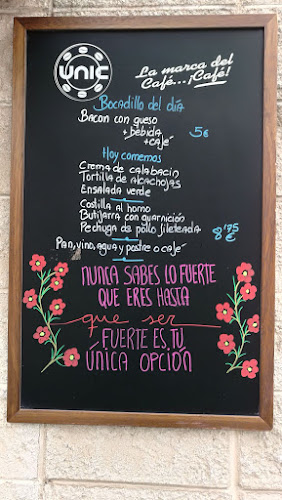 UNIC
La marca del
Café...¡Café!
Bocadillo del día
Bacon con queso
+ bebida
+ café
5€
Hoy comemos
Crema de calabacin
Tortilla de alcachofas
Ensalada verde
Costilla al horno
Butifarra con guarnición
Pechuga de pollo fileteada
8'75 €
Pan, vino, agua y postre o café
NUNCA SABES LO FUERTE
QUE ERES HASTA
que ser
FUERTE ES, TÚ
ÚNICA OPCIÓN